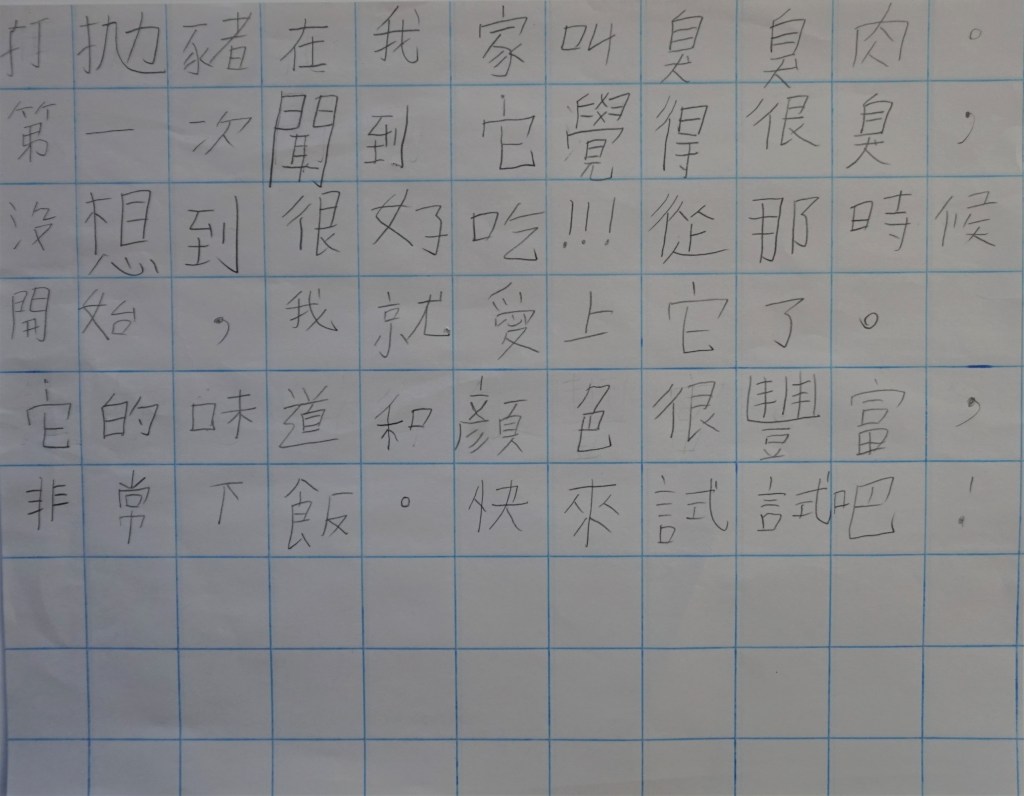 打抛豬在我家叫臭臭肉。
第一次聞到它覺得很臭，
沒想到很好吃!!!從那時候
開始，我就愛上它了。
它的味道和顏色很豐富，
非常下飯。快來試試吧！